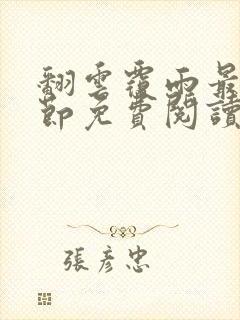 翻雲覆雨最
節免費閱讀
張彥忠